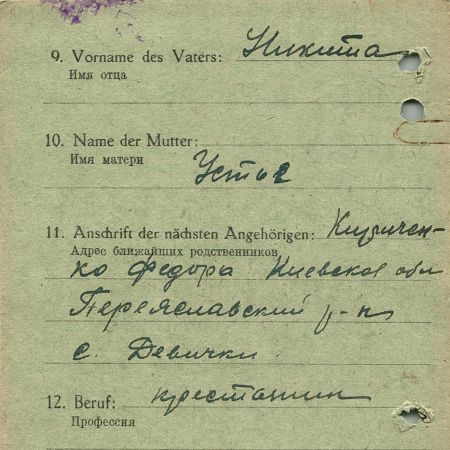 9. Vorname des Vaters: Никита
Имя отца
10. Name der Mutter:
Имя матери
Устья
11. Anschrift der nächsten Angehörigen: Кириччен-
Адрес ближайших родственников
ко Федора Киевской обл
Переяславский р-н
с. Девички
12. Beruf: крестянин
Профессия